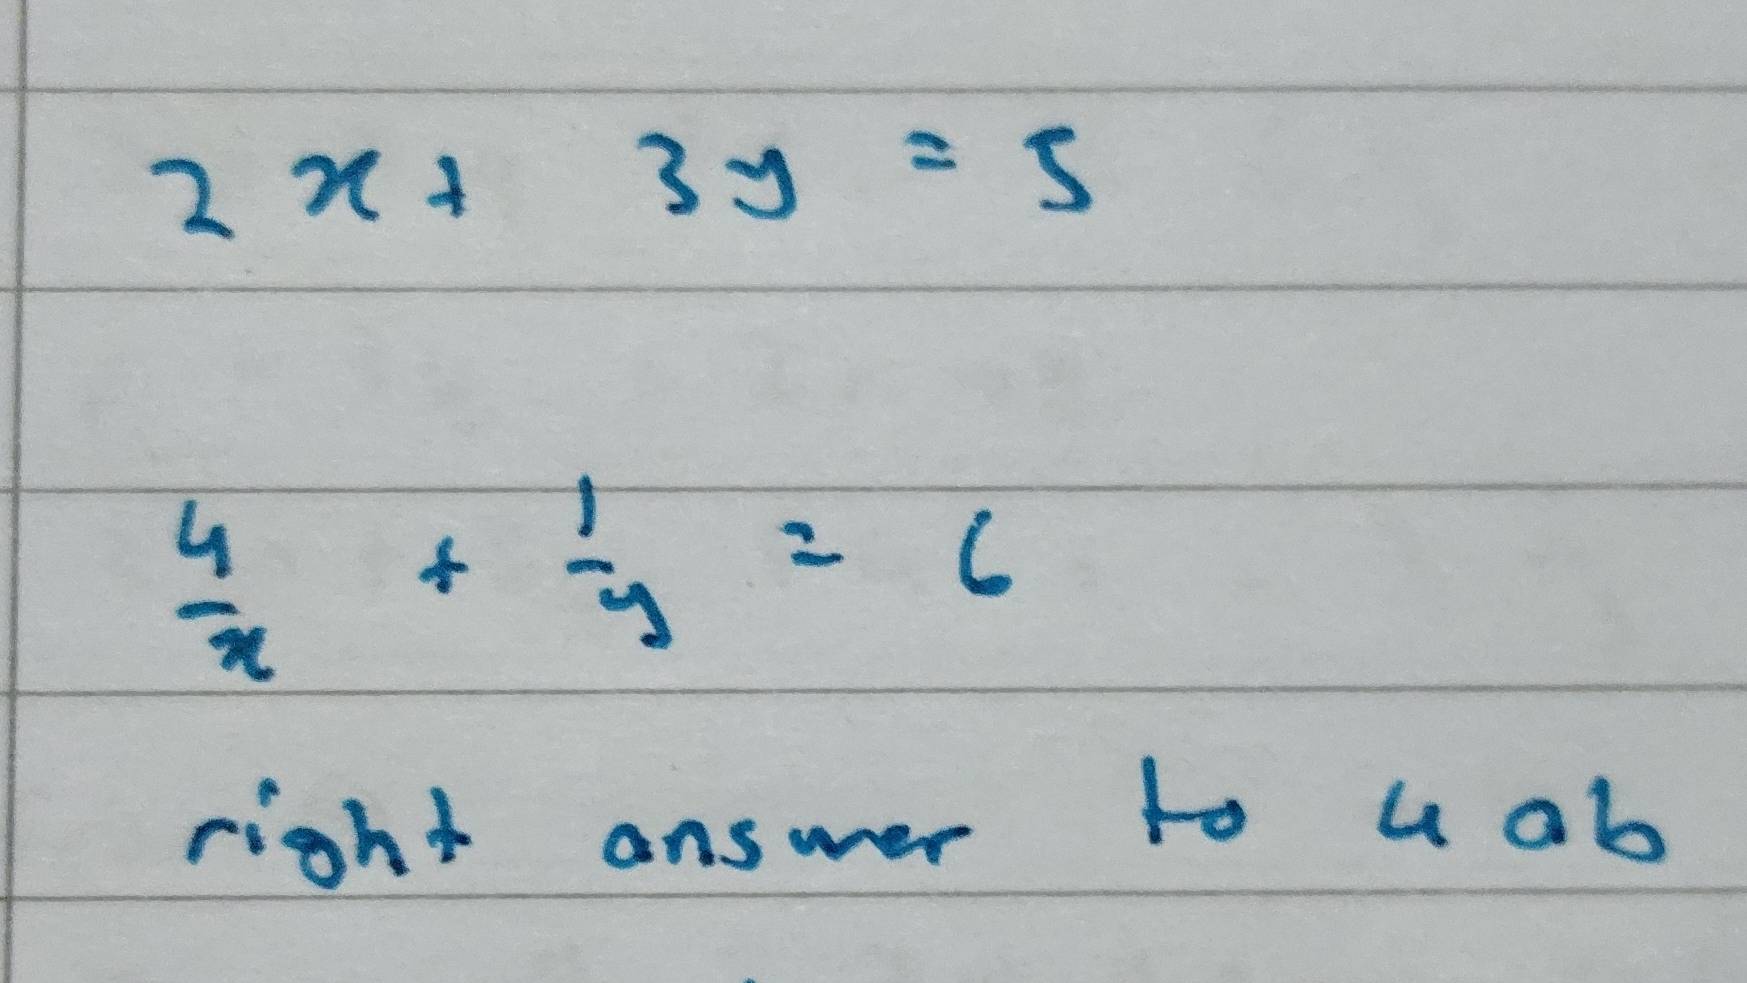 2x + 3y = 5
4/x + 1/y = 6
right answer to 4 ab